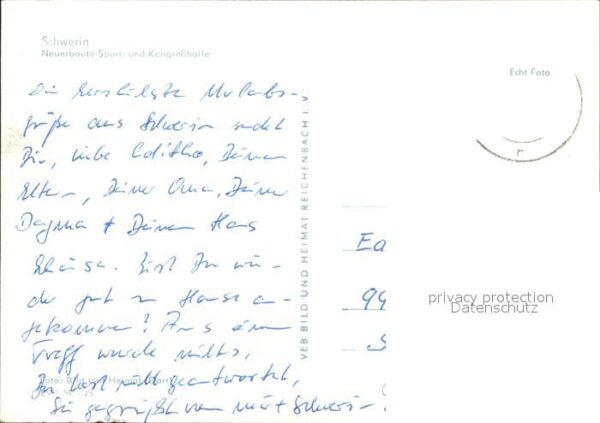 Schwerin
Neuerbaute Sport- und Kongreßhalle
Echt Foto
Die herzlichsten Urlaubs-
grüße aus Schwerin sendet
Dir, liebe Editha, Deinen
Eltern, Deiner Oma, Deiner
Dagma + Deinem Hans
Klaus. Bist Du wie-
der gut zu Hause an-
gekommen? Aus einem
Treff wurde nichts,
Du hast nicht geantwortet,
Sei gegrüßt von
VEB BILD UND HEIMAT REICHENBACH I. V
Foto: Bild und Heimat
Ea
99
S
privacy protection
Datenschutz